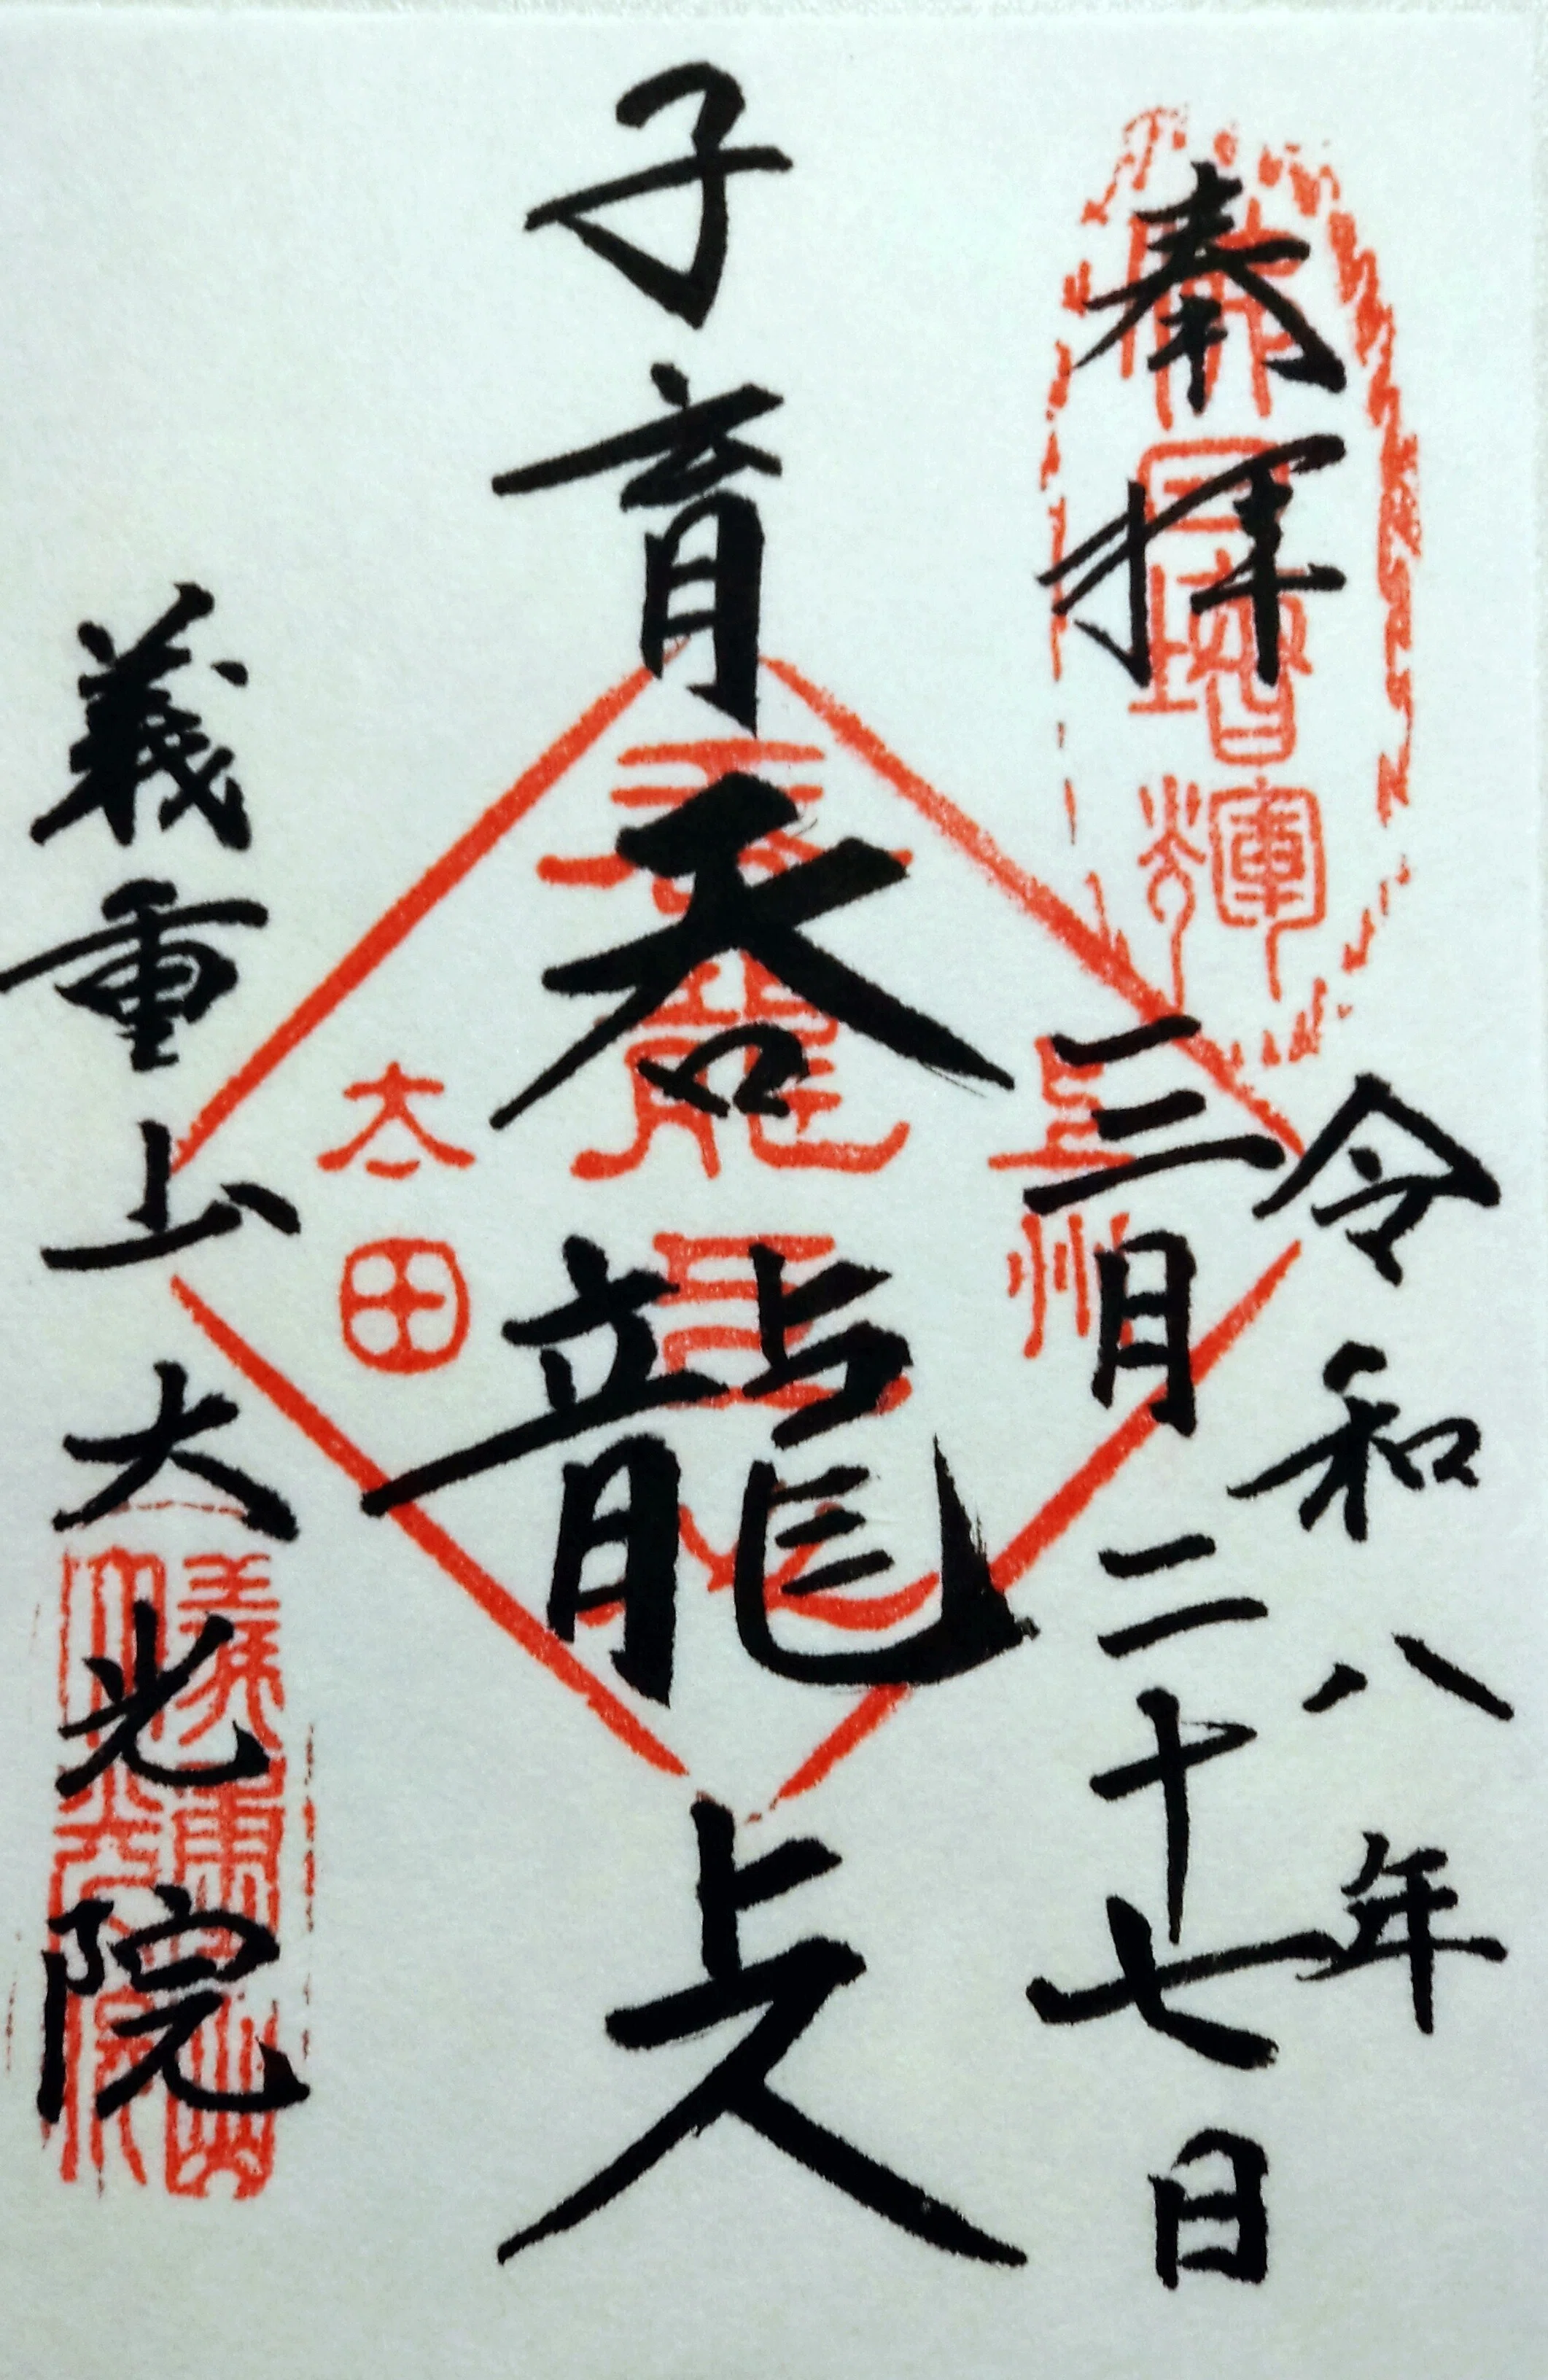 奉拝
令和八年
三月二十七日
子育呑龍上人
義重山大光院
上州
太田